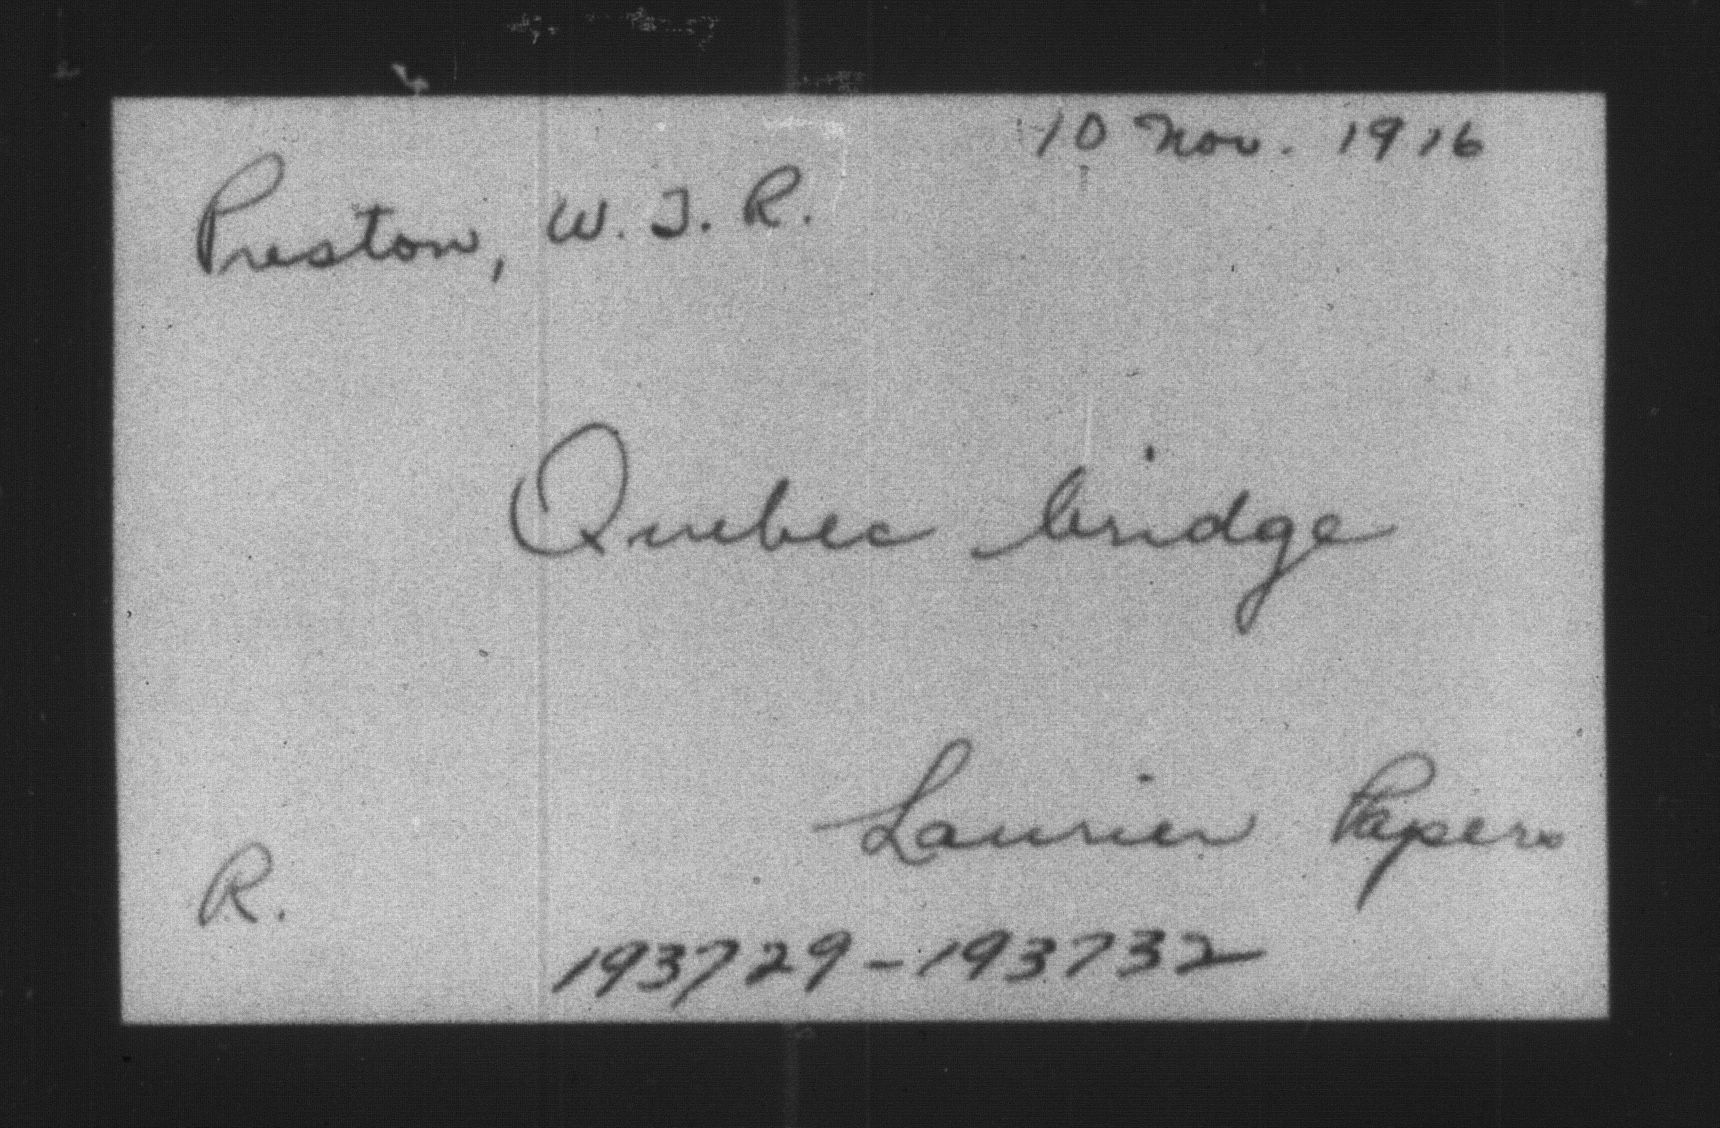 10 Nov. 1916
Preston, W. T. R.
Quebec bridge
Laurier Papers
R.
193729-193732